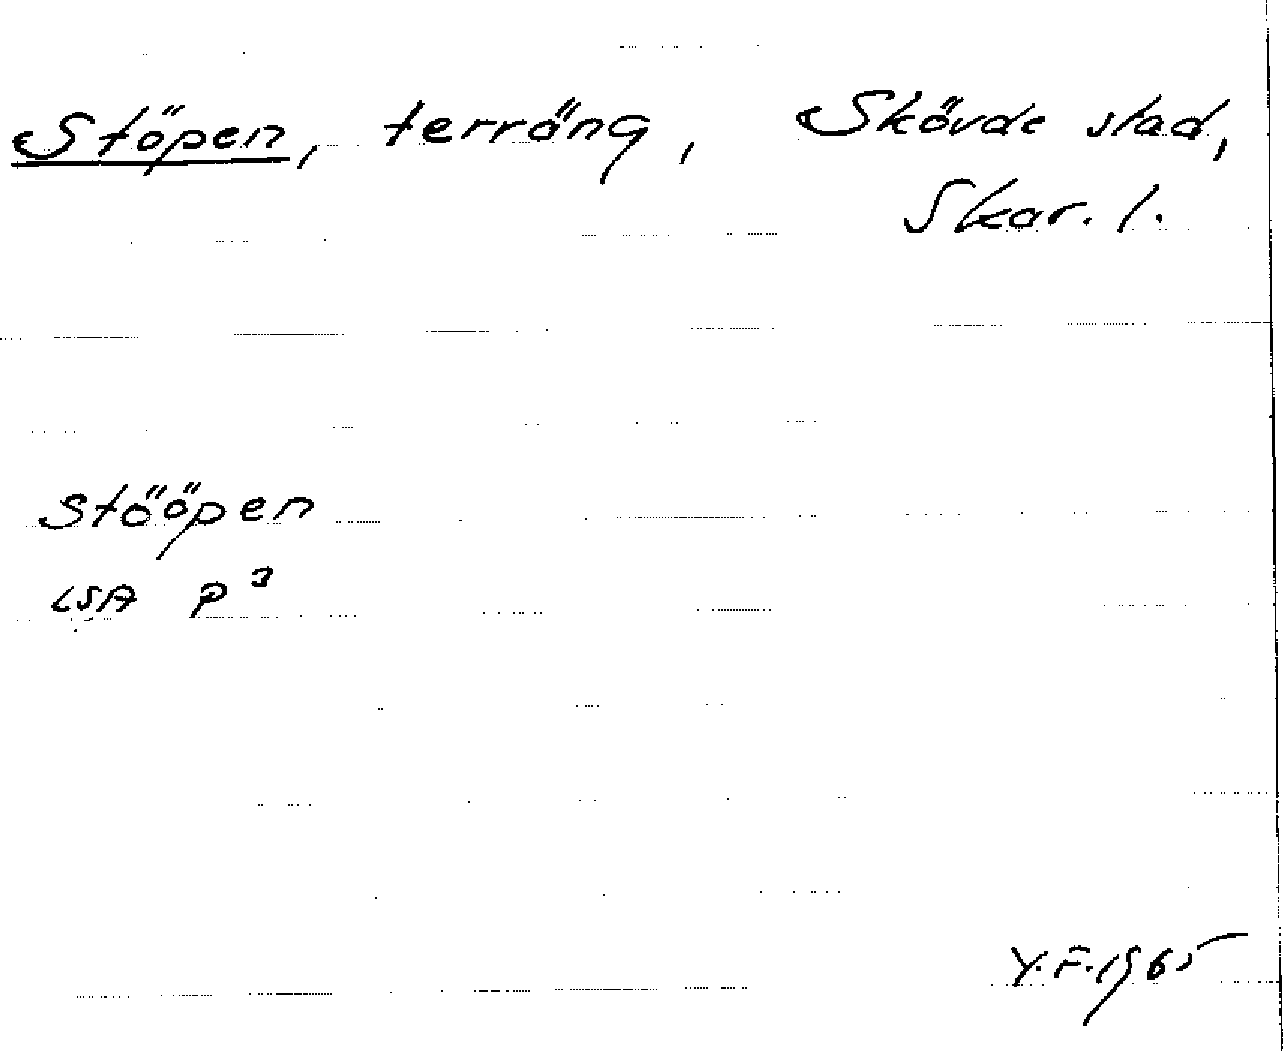 Stöpen, terräng, Skövde stad,
Skar. l.
Stööpen
LSA P³
Y.F. 1965